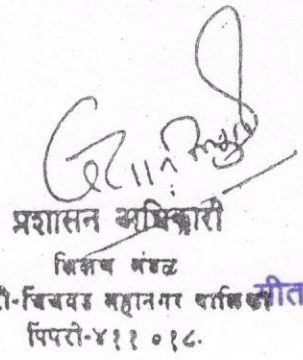 प्रशासन अधिकारी
शिक्षण मंडळ
री-चिंचवड महानगर पालिका
पिंपरी-४११ ०१८.
गीत